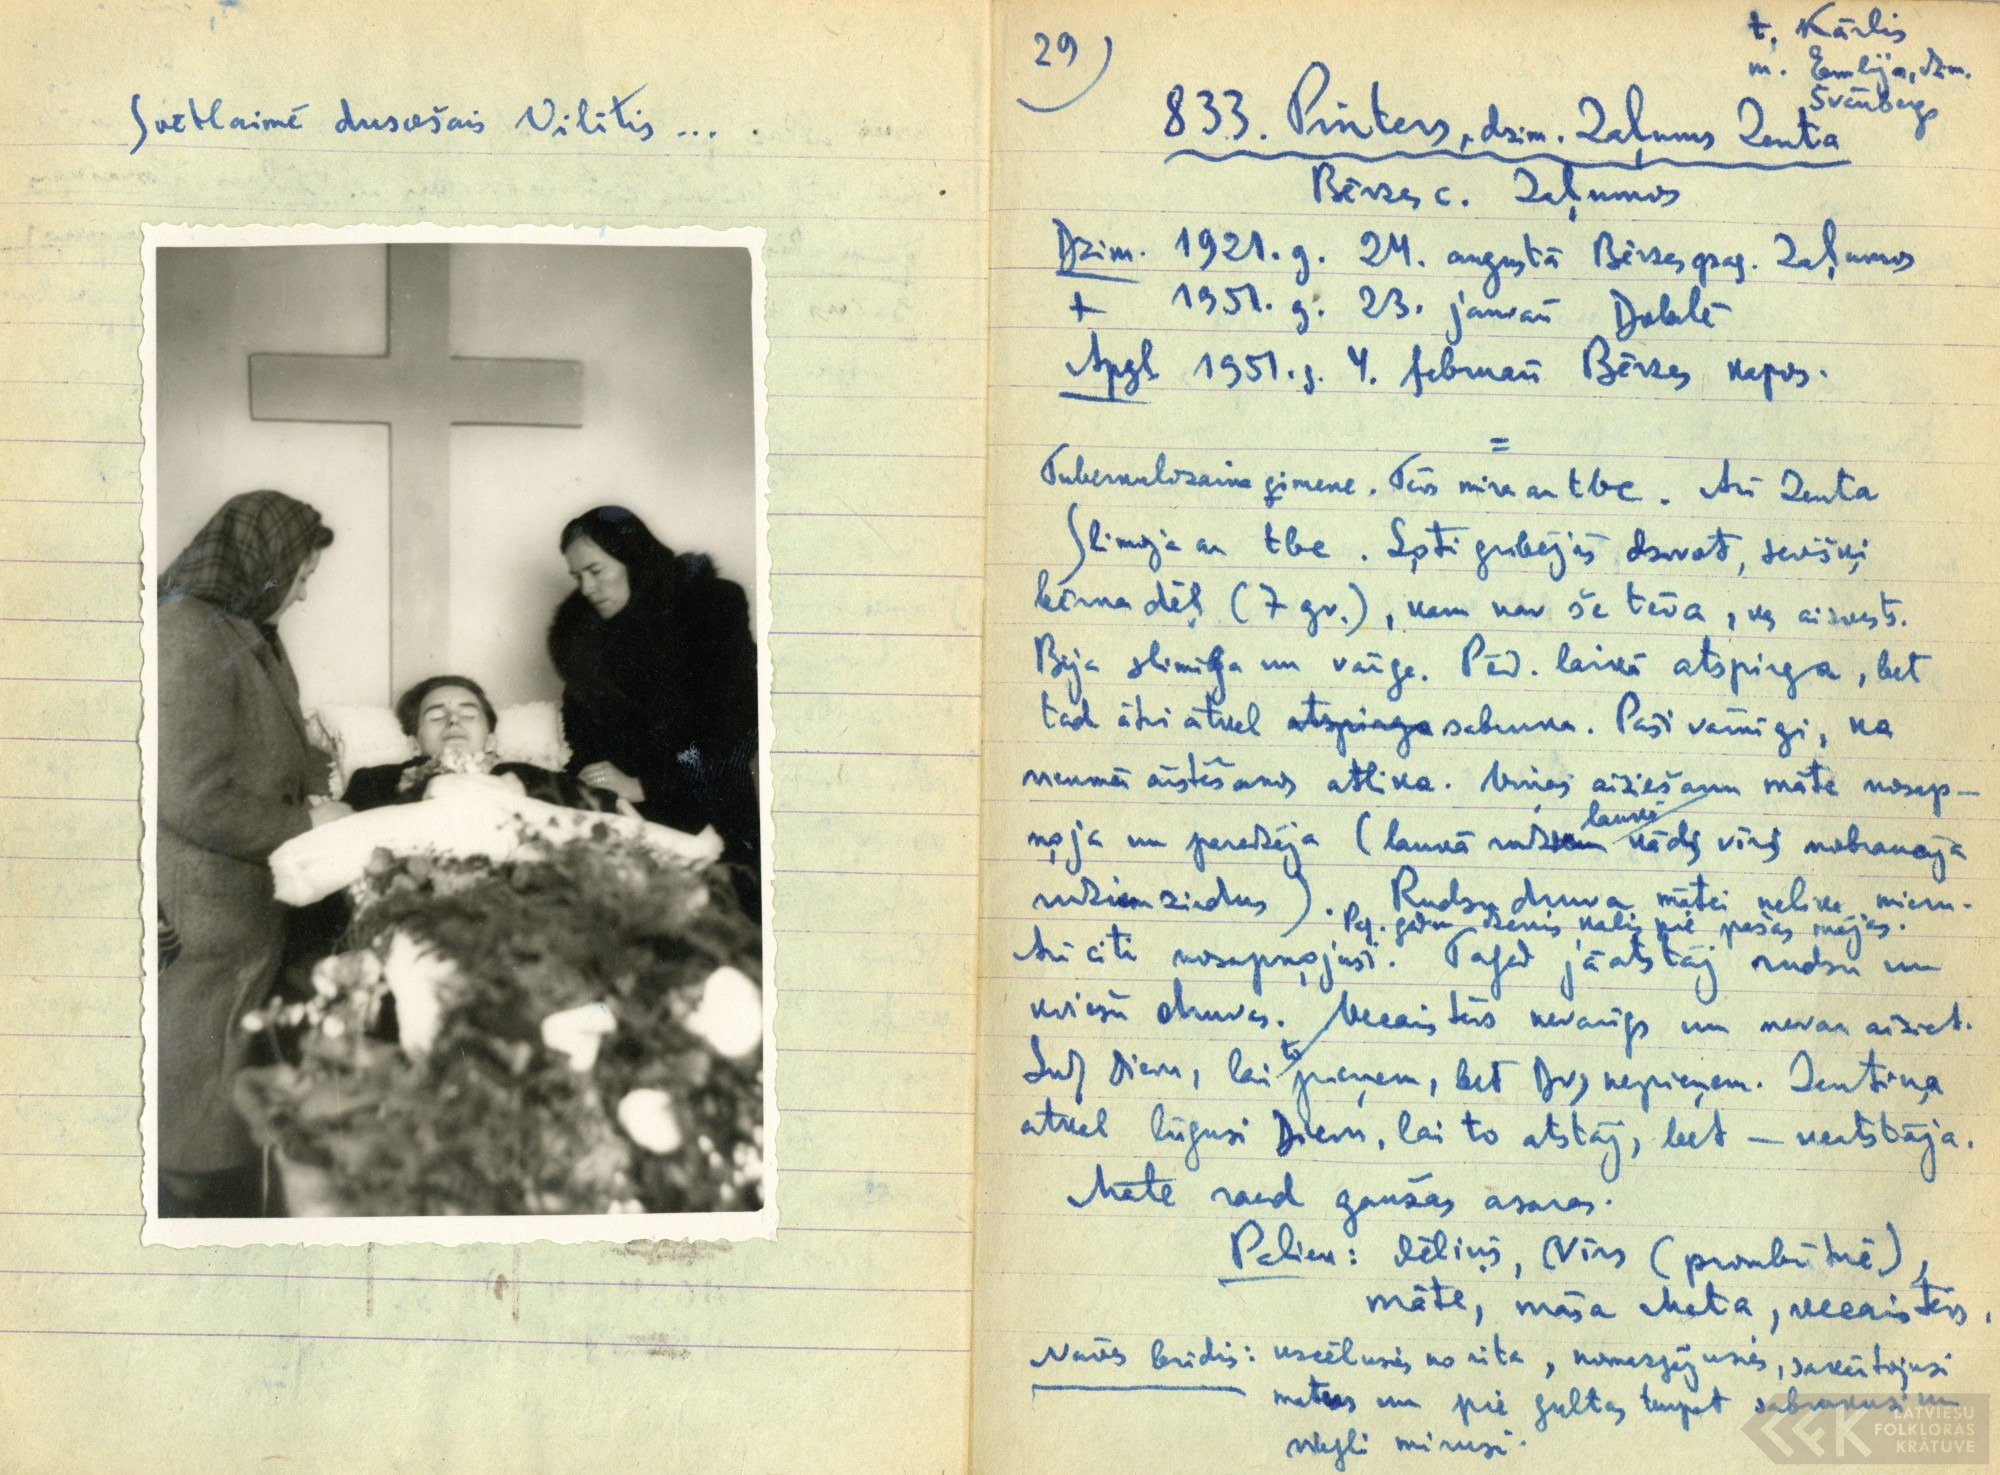 Svētlaimē dusošais Vilītis ...
29)
t. Kārlis
m. Emīlija, dzim.
Švānbergs
833. Pinters, dzim. Zaļums Zenta
Bērzes c. Zaļumos
Dzim. 1921. g. 24. augustā Bērzes pag. Zaļumos
+ 1951. g. 23. janvārī Dobelē
Apgl. 1951. g. 4. februārī Bērzes kapos.
=
Tuberkulozaina ģimene. Tēvs mira ar tbc. Arī Zenta
slimoja ar tbc. Ļoti gribējās dzīvot, sevišķi
bērna dēļ (7 gv.), kam nav še tēva, kas aizvests.
Bija slimīga un vārga. Pēd. laikā atspirga, bet
tad ātri atkal atspirga sabruka. Paši vainīgi, ka
nenmā ārstēšanos atlika. Viņas aiziešanu māte nosap-
ņoja un paredzēja (laukā rudzu laukā kāds vīrs nobraucīja
rudziem ziedus). Rudzu druva mātei nelika mieru.
Pag. gadu dzenis kalis pie pašas mājas.
Arī citi nosapņojuši. Tagad jāatstāj rudzu un
kviešu druvas. Vecaistēvs nevarīgs un nevar aiziet.
Lūdz Dievu, lai to pieņem, bet Dvs nepieņem. Zentiņa
atkal lūgusi Dievu, lai to atstāj, bet – neatstāja.
Māte raud gaužas asaras.
Paliek: dēliņš, vīrs (prombūtnē),
māte, māsa Meta, vecaistēvs.
Nāves brīdis: uzcēlusies no rīta, nomazgājusies, sakārtojusi
matus un pie gultas turpat sabrukusi un
viegli mirusi.
LATVIEŠU
FOLKLORAS
KRĀTUVE